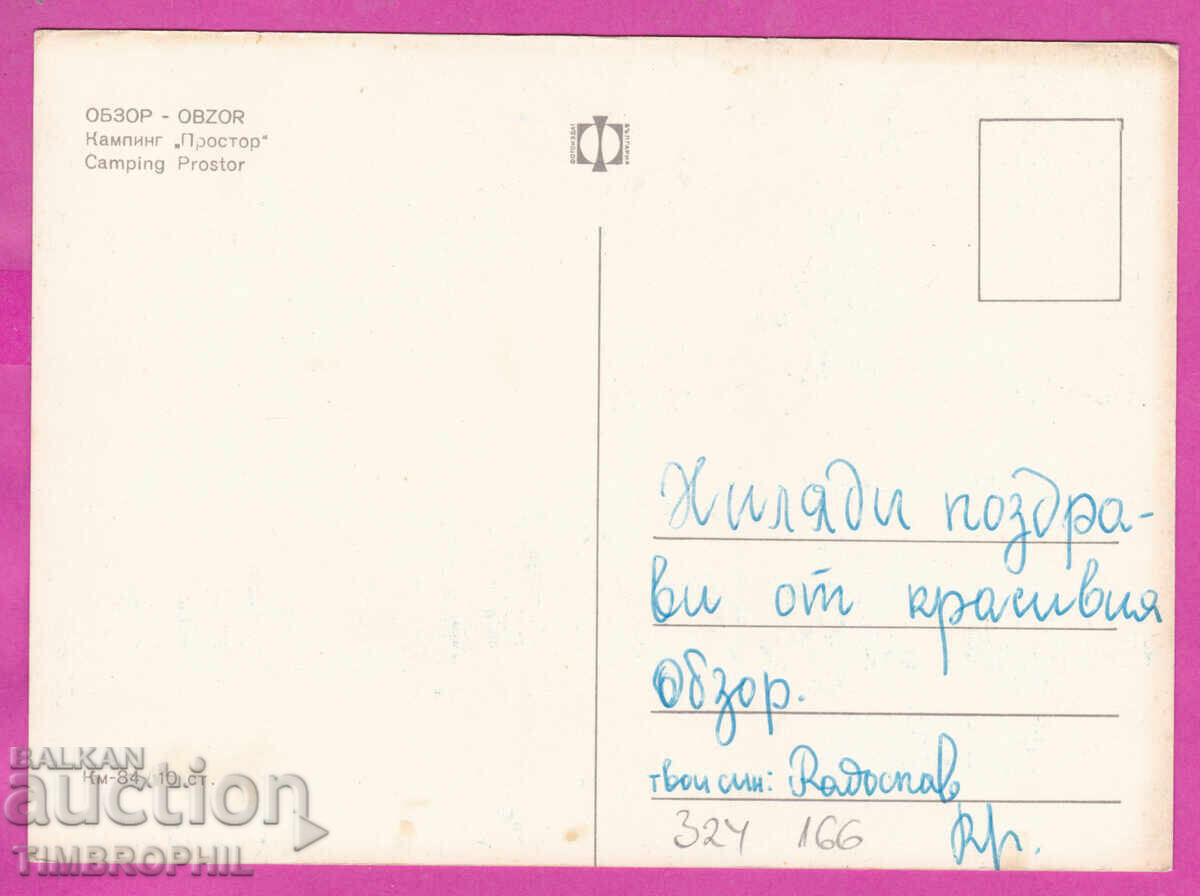 ОБЗОР - OBZOR
Кампинг „Простор“
Camping Prostor
ФОТОИЗДАТ
БЪЛГАРИЯ
Хиляди поздра-
ви от красивия
Обзор.
твои син: Радослав
Кр.
324 166
Км-84 10 ст.
BALKAN
auction
TIMBROPHIL